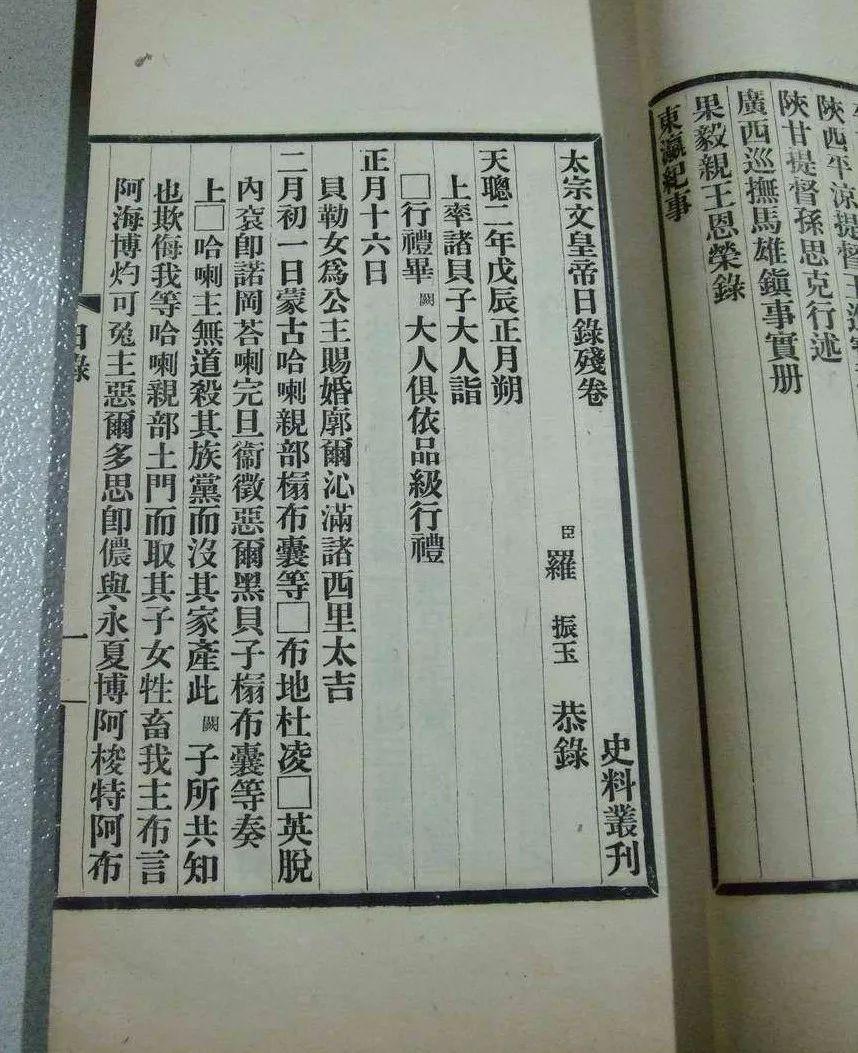 陝西平涼提督王進寶
陝甘提督孫思克行述
廣西巡撫馬雄鎮事實册
果毅親王恩榮錄
東瀛紀事
史料叢刊
太宗文皇帝日錄殘卷
臣羅振玉恭錄
天聰二年戊辰正月朔
上率諸貝子大人詣
□行禮畢闕大人俱依品級行禮
正月十六日
貝勒女爲公主賜婚廓爾沁滿諸西里太吉
二月初一日蒙古哈喇親部榻布囊等□布地杜凌□英脫
內袞卽諾岡荅喇完旦衞徵惡爾黑貝子榻布囊等奏
上□哈喇主無道殺其族黨而沒其家產此闕子所共知
也欺侮我等哈喇親部土門而取其子女牲畜我主布言
阿海博灼可兔主惡爾多思卽儂與永夏博阿梭特阿布
日錄
一